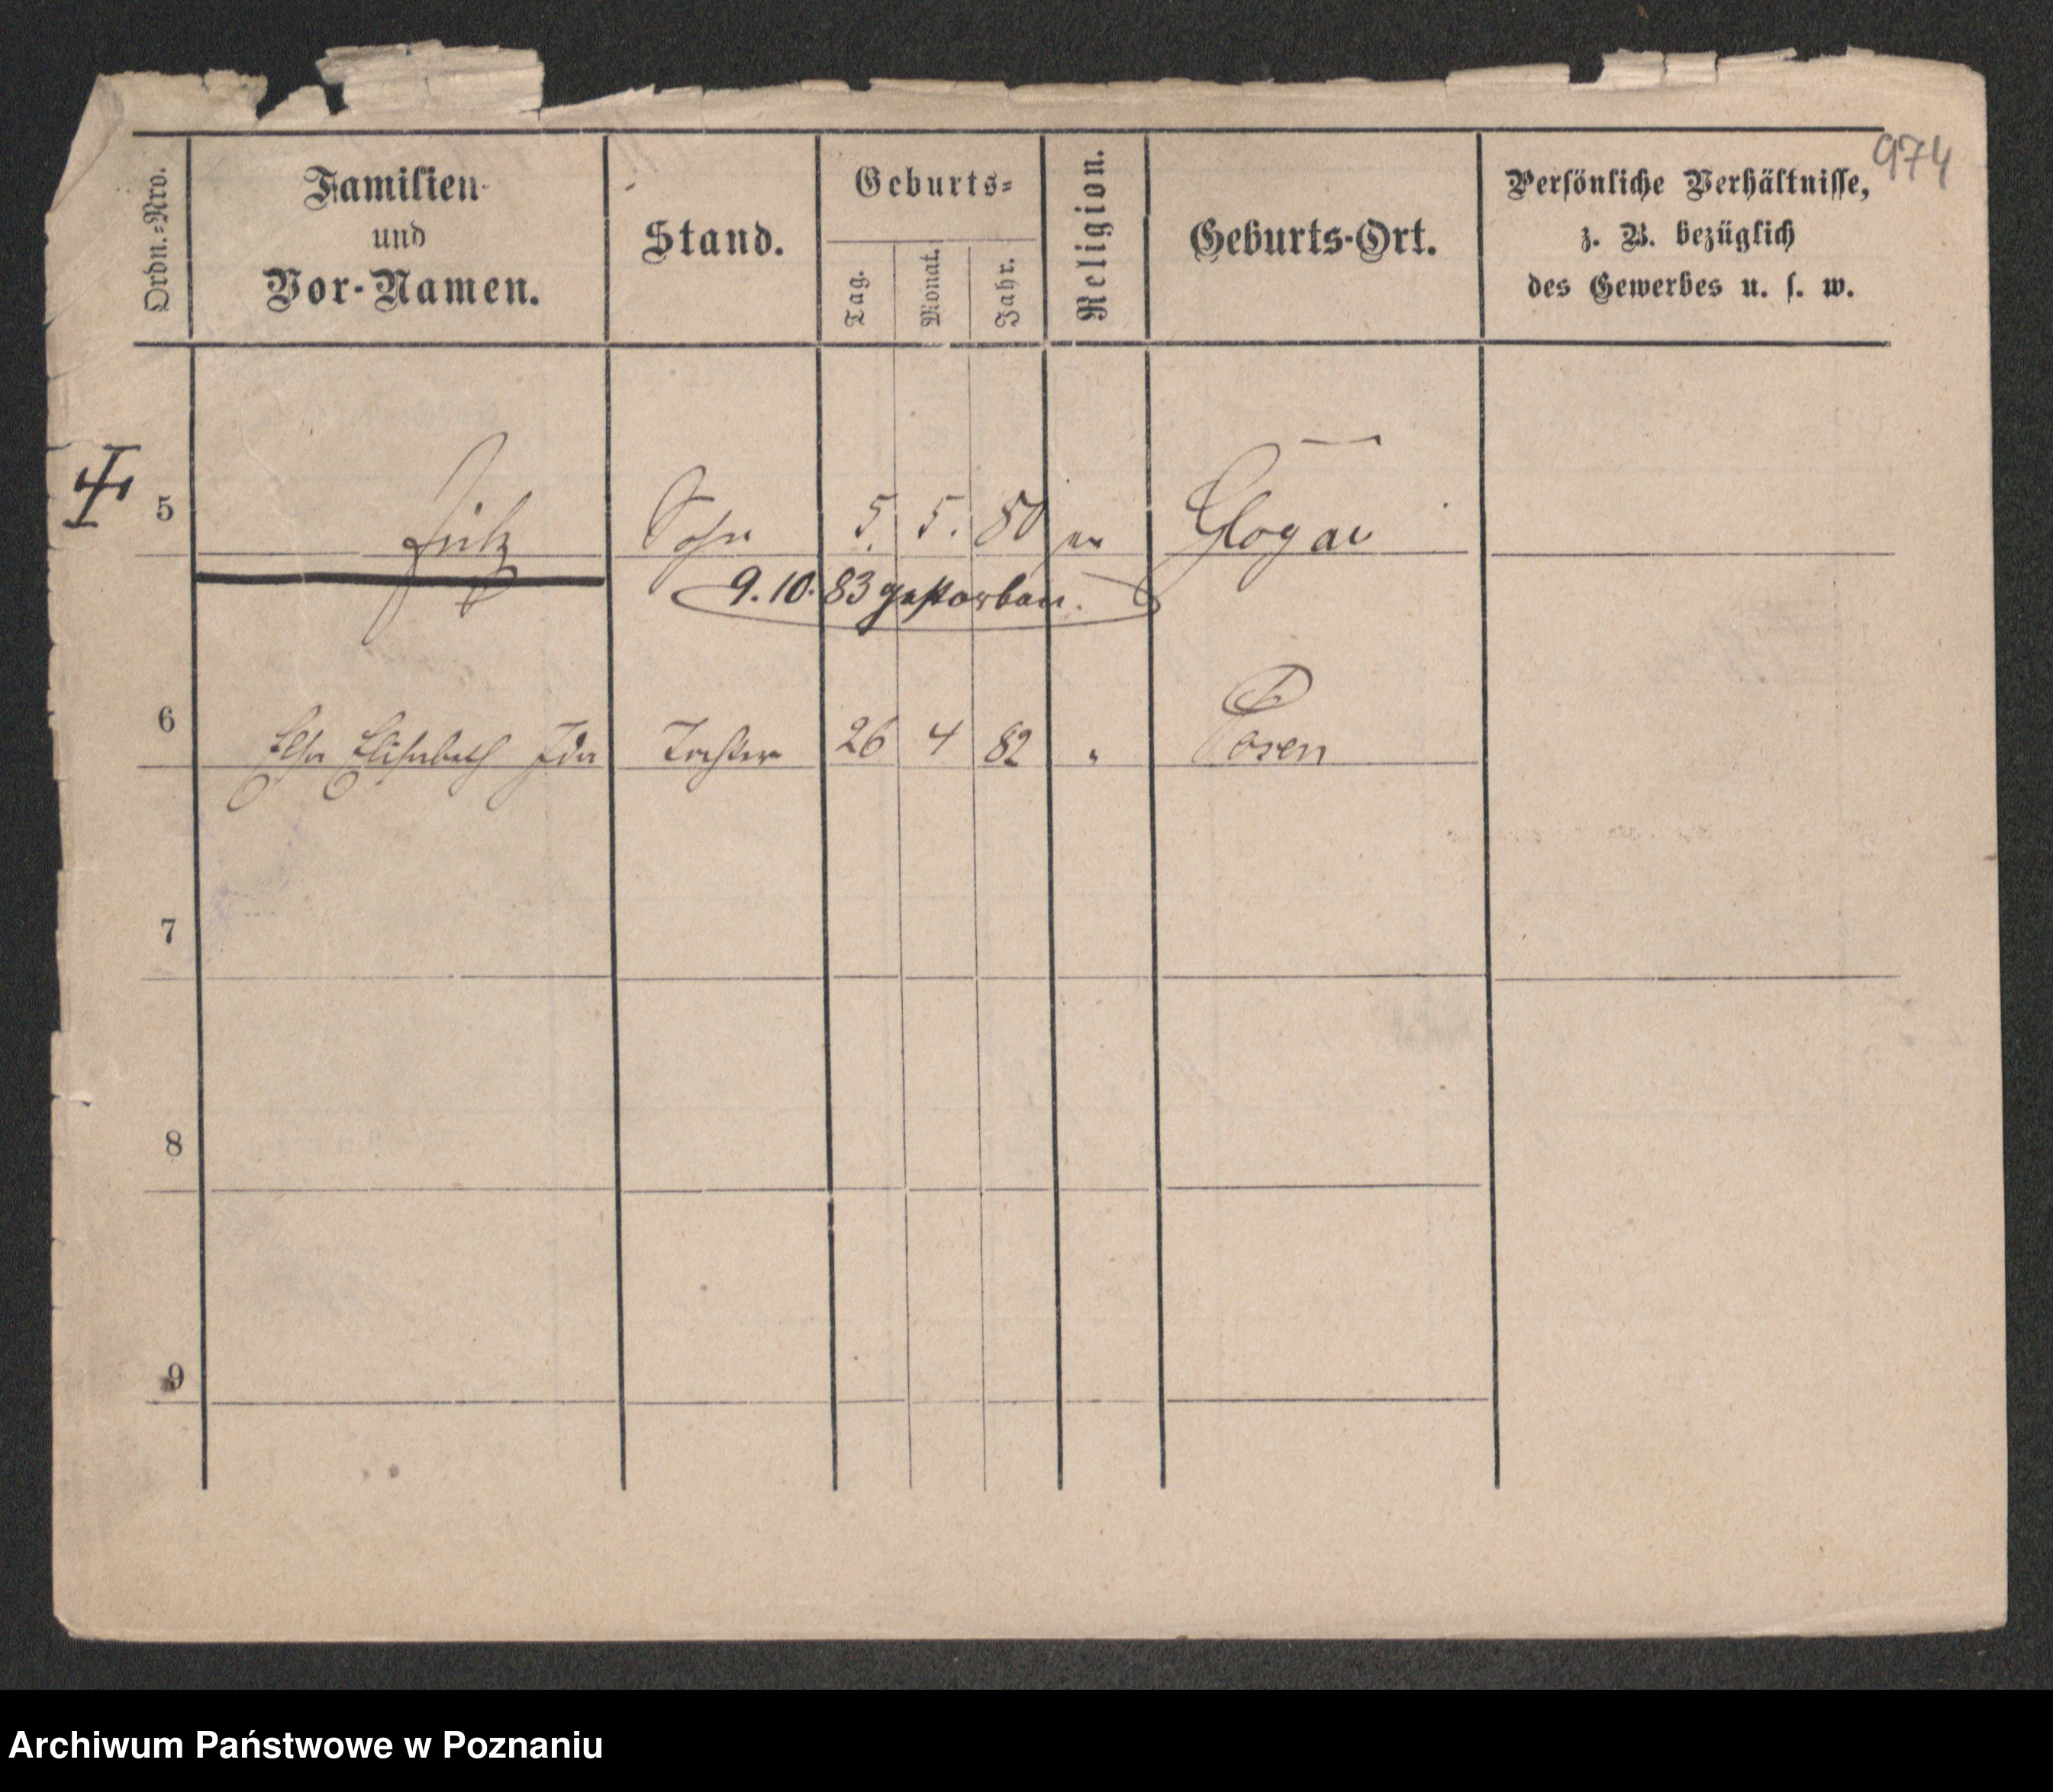 974
Ordn.-Nro.
Familien-
und
Vor-Namen.
Stand.
Geburts-
Tag.
Monat.
Jahr.
Religion.
Geburts-Ort.
Persönliche Verhältnisse,
z. B. bezüglich
des Gewerbes u. s. w.
5 Fritz Sohn 5. 5. 80 ev Glogau
9. 10. 83 gestorben.
6 Elsa Elisabeth Ida Tochter 26 4 82 " Posen
7
8
9
Archiwum Państwowe w Poznaniu